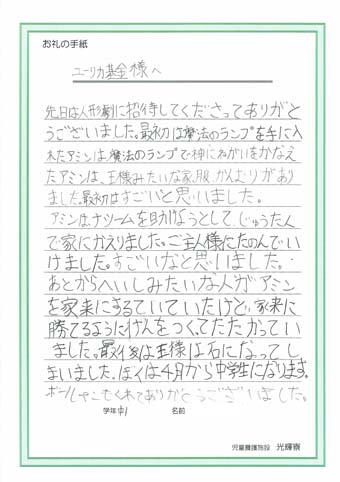 お礼の手紙
ユーリカ基金様へ
先日は人形劇に招待してくださってありがと
うございました。最初は魔法のランプを手に入
れたアミンは、魔法のランプで神にねがいをかなえ
たアミンは、王様みたいな家、服、かんむりがあり
ました。最初はすごいと思いました。
アミンは、ナシームを助けようとして、じゅうたん
で家にかえりました。ご主人様にたのんでい
けました。すごいなと思いました。
あとからへいしみたいな人がアミン
を家来にするていていたけど、家来に
勝てるようにけんをつくってたたかってい
ました。最後は王様は石になってし
まいました。ぼくは4月から中学生になります。
ボールやこてくれてありがとうございました。
学年 中1 名前
児童養護施設 光輝寮